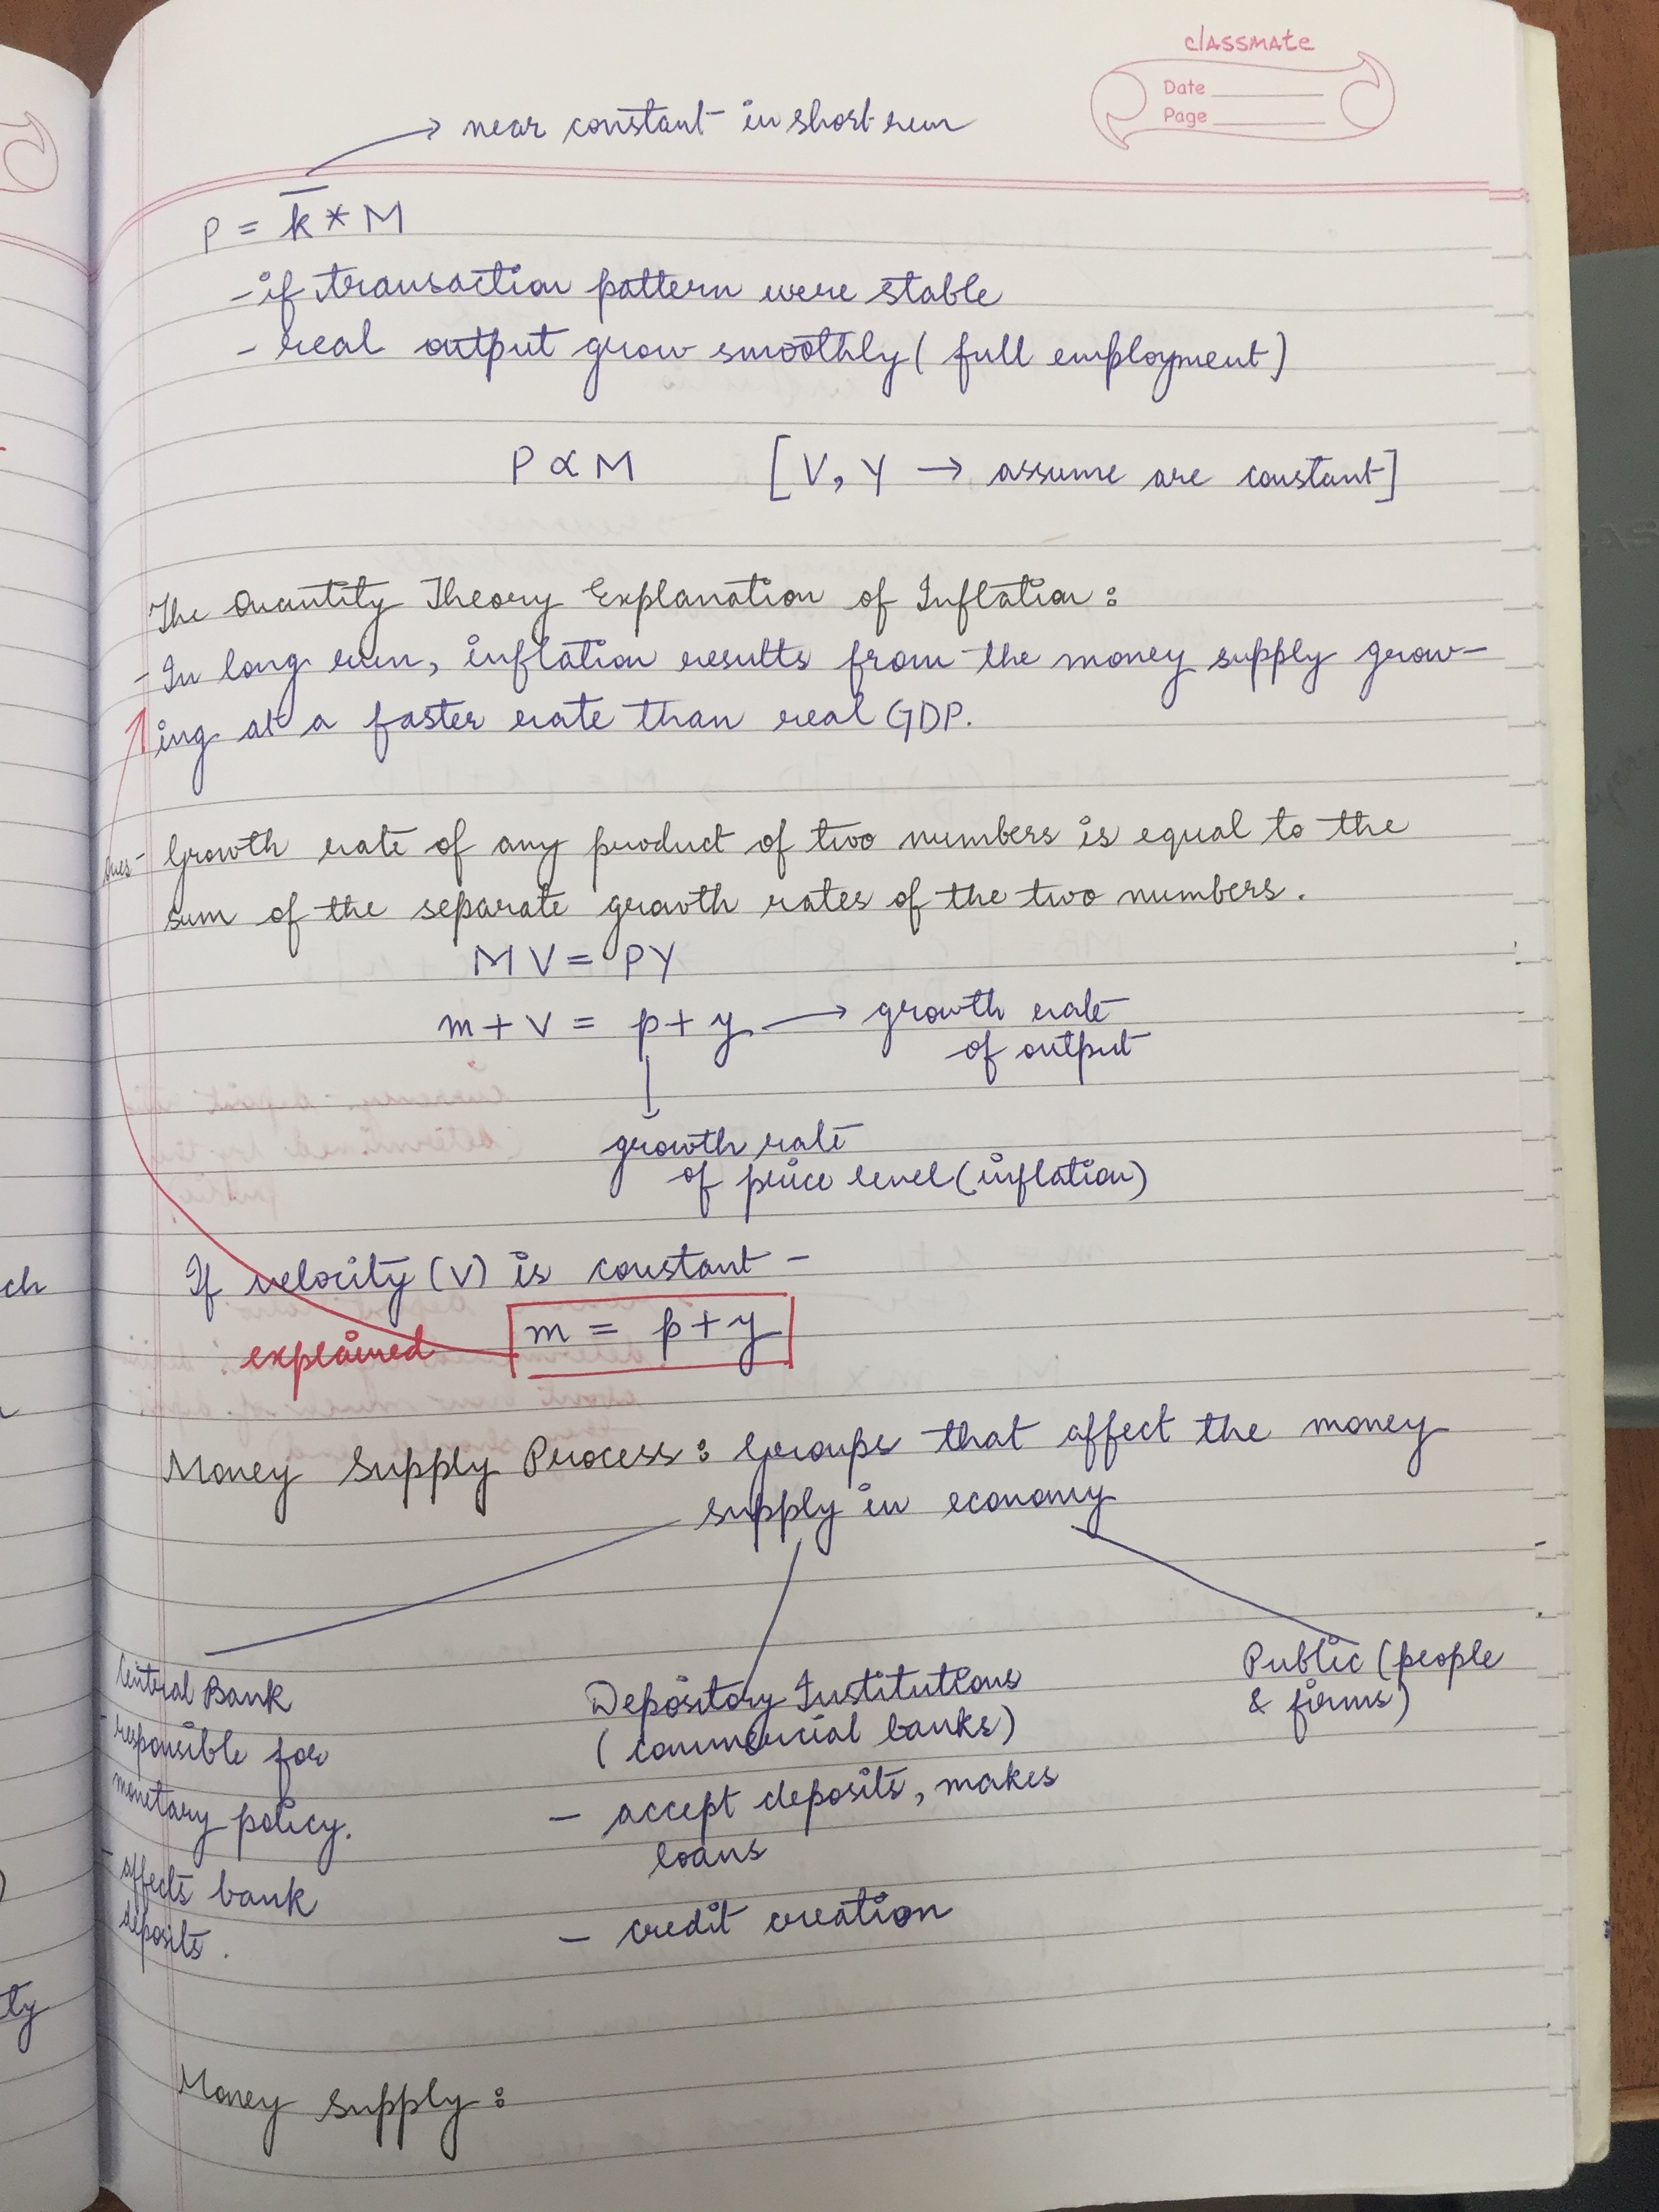 classmate
Date
Page
near constant in short run
P = k̅ * M
- if transaction pattern were stable
- real output grow smoothly (full employment)
P ∝ M [V, Y → assume are constant]
The Quantity Theory Explanation of Inflation:
- In long run, inflation results from the money supply grow-
ing at a faster rate than real GDP.
Growth rate of any product of two numbers is equal to the
sum of the separate growth rates of the two numbers.
MV = PY
m + v = p + y → growth rate
of output
growth rate
of price level (inflation)
If velocity (V) is constant -
explained m = p + y
Money Supply Process: Groups that affect the money
supply in economy
Central Bank
- responsible for
monetary policy.
- affects bank
deposits.
Depository Institutions
(commercial banks)
- accept deposits, makes
loans
- credit creation
Public (people
& firms)
Money Supply:
ch
ty